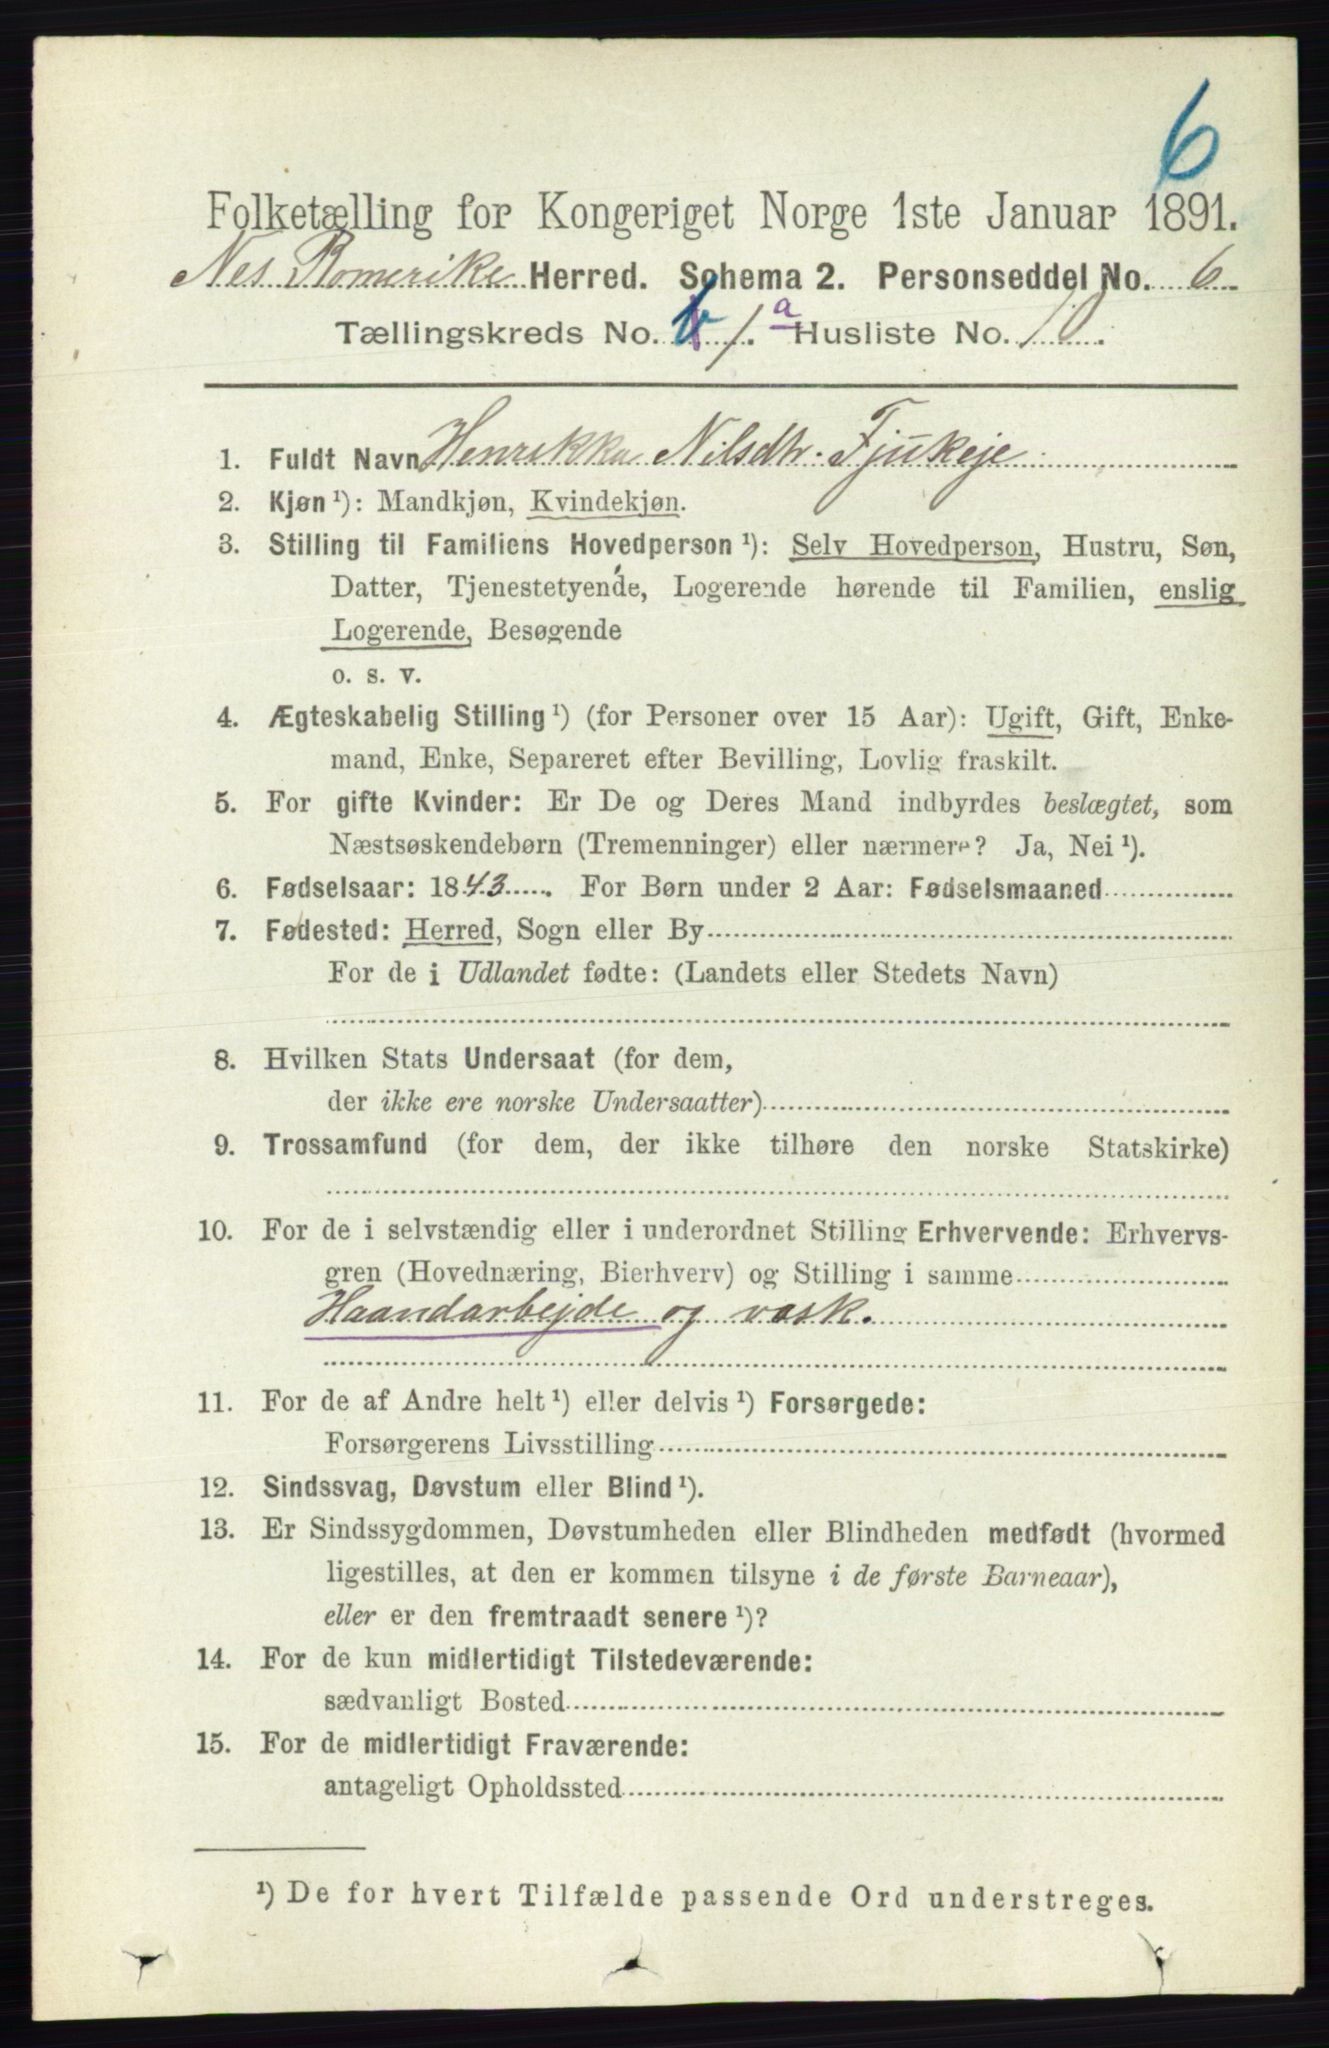 6
Folketælling for Kongeriget Norge 1ste Januar 1891.
Nes Romerike Herred. Schema 2. Personseddel No. 6
Tællingskreds No. 1.a Husliste No. 10.
1. Fuldt Navn Henrikka Nilsdtr. Fjukeje
2. Kjøn ¹): Mandkjøn, Kvindekjøn.
3. Stilling til Familiens Hovedperson ¹): Selv Hovedperson, Hustru, Søn,
Datter, Tjenestetyende, Logerende hørende til Familien, enslig
Logerende, Besøgende
o. s. v.
4. Ægteskabelig Stilling ¹) (for Personer over 15 Aar): Ugift, Gift, Enke-
mand, Enke, Separeret efter Bevilling, Lovlig fraskilt.
5. For gifte Kvinder: Er De og Deres Mand indbyrdes beslægtet, som
Næstsøskendebørn (Tremenninger) eller nærmere? Ja, Nei ¹).
6. Fødselsaar: 1843. For Børn under 2 Aar: Fødselsmaaned
7. Fødested: Herred, Sogn eller By
For de i Udlandet fødte: (Landets eller Stedets Navn)
8. Hvilken Stats Undersaat (for dem,
der ikke ere norske Undersaatter)
9. Trossamfund (for dem, der ikke tilhøre den norske Statskirke)
10. For de i selvstændig eller i underordnet Stilling Erhvervende: Erhvervs-
gren (Hovednæring, Bierhverv) og Stilling i samme
Haandarbejde og vask.
11. For de af Andre helt ¹) eller delvis ¹) Forsørgede:
Forsørgerens Livsstilling
12. Sindssvag, Døvstum eller Blind ¹).
13. Er Sindssygdommen, Døvstumheden eller Blindheden medfødt (hvormed
ligestilles, at den er kommen tilsyne i de første Barneaar),
eller er den fremtraadt senere ¹)?
14. For de kun midlertidigt Tilstedeværende:
sædvanligt Bosted
15. For de midlertidigt Fraværende:
antageligt Opholdssted
¹) De for hvert Tilfælde passende Ord understreges.